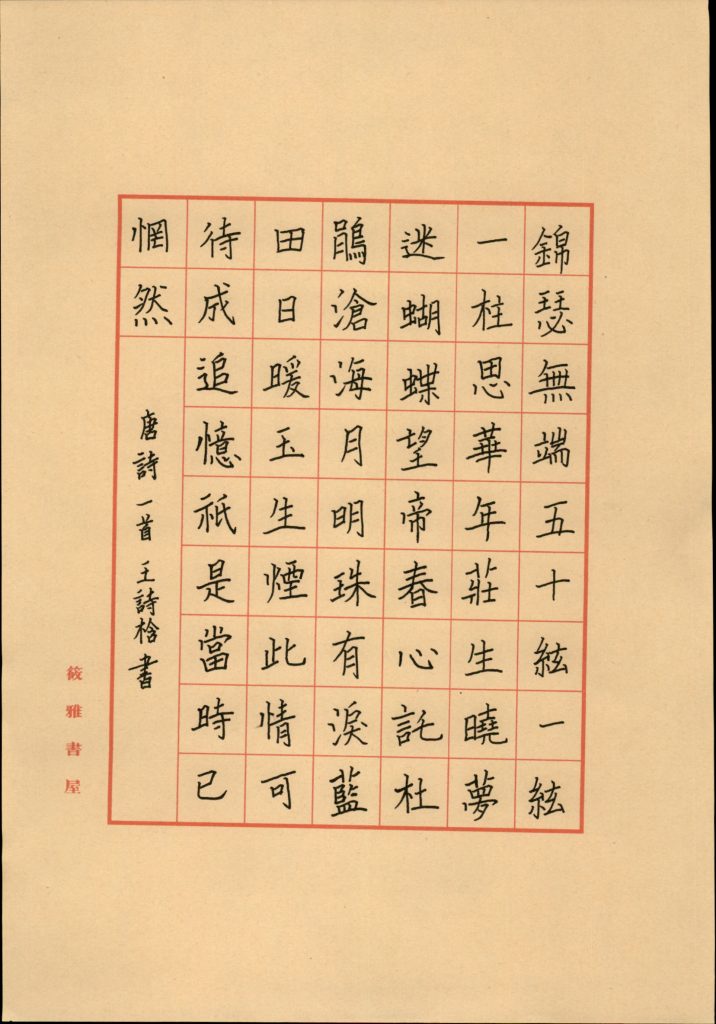 錦瑟無端五十絃一絃
一柱思華年莊生曉夢
迷蝴蝶望帝春心託杜
鵑滄海月明珠有淚藍
田日暖玉生煙此情可
待成追憶祇是當時已
惘然
唐詩一首 王詩桧書
筱雅書屋